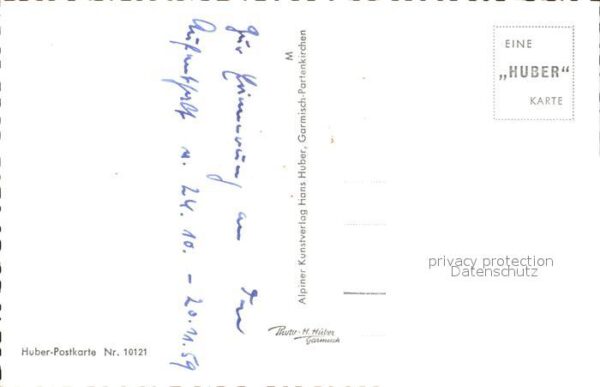 Zur Erinnerung an den
Aufenthalt v. 24. 10. – 20. 11. 59
M
Alpiner Kunstverlag Hans Huber, Garmisch-Partenkirchen
EINE
„HUBER"
KARTE
privacy protection
Datenschutz
Photo-H. Huber
Garmisch
Huber-Postkarte Nr. 10121